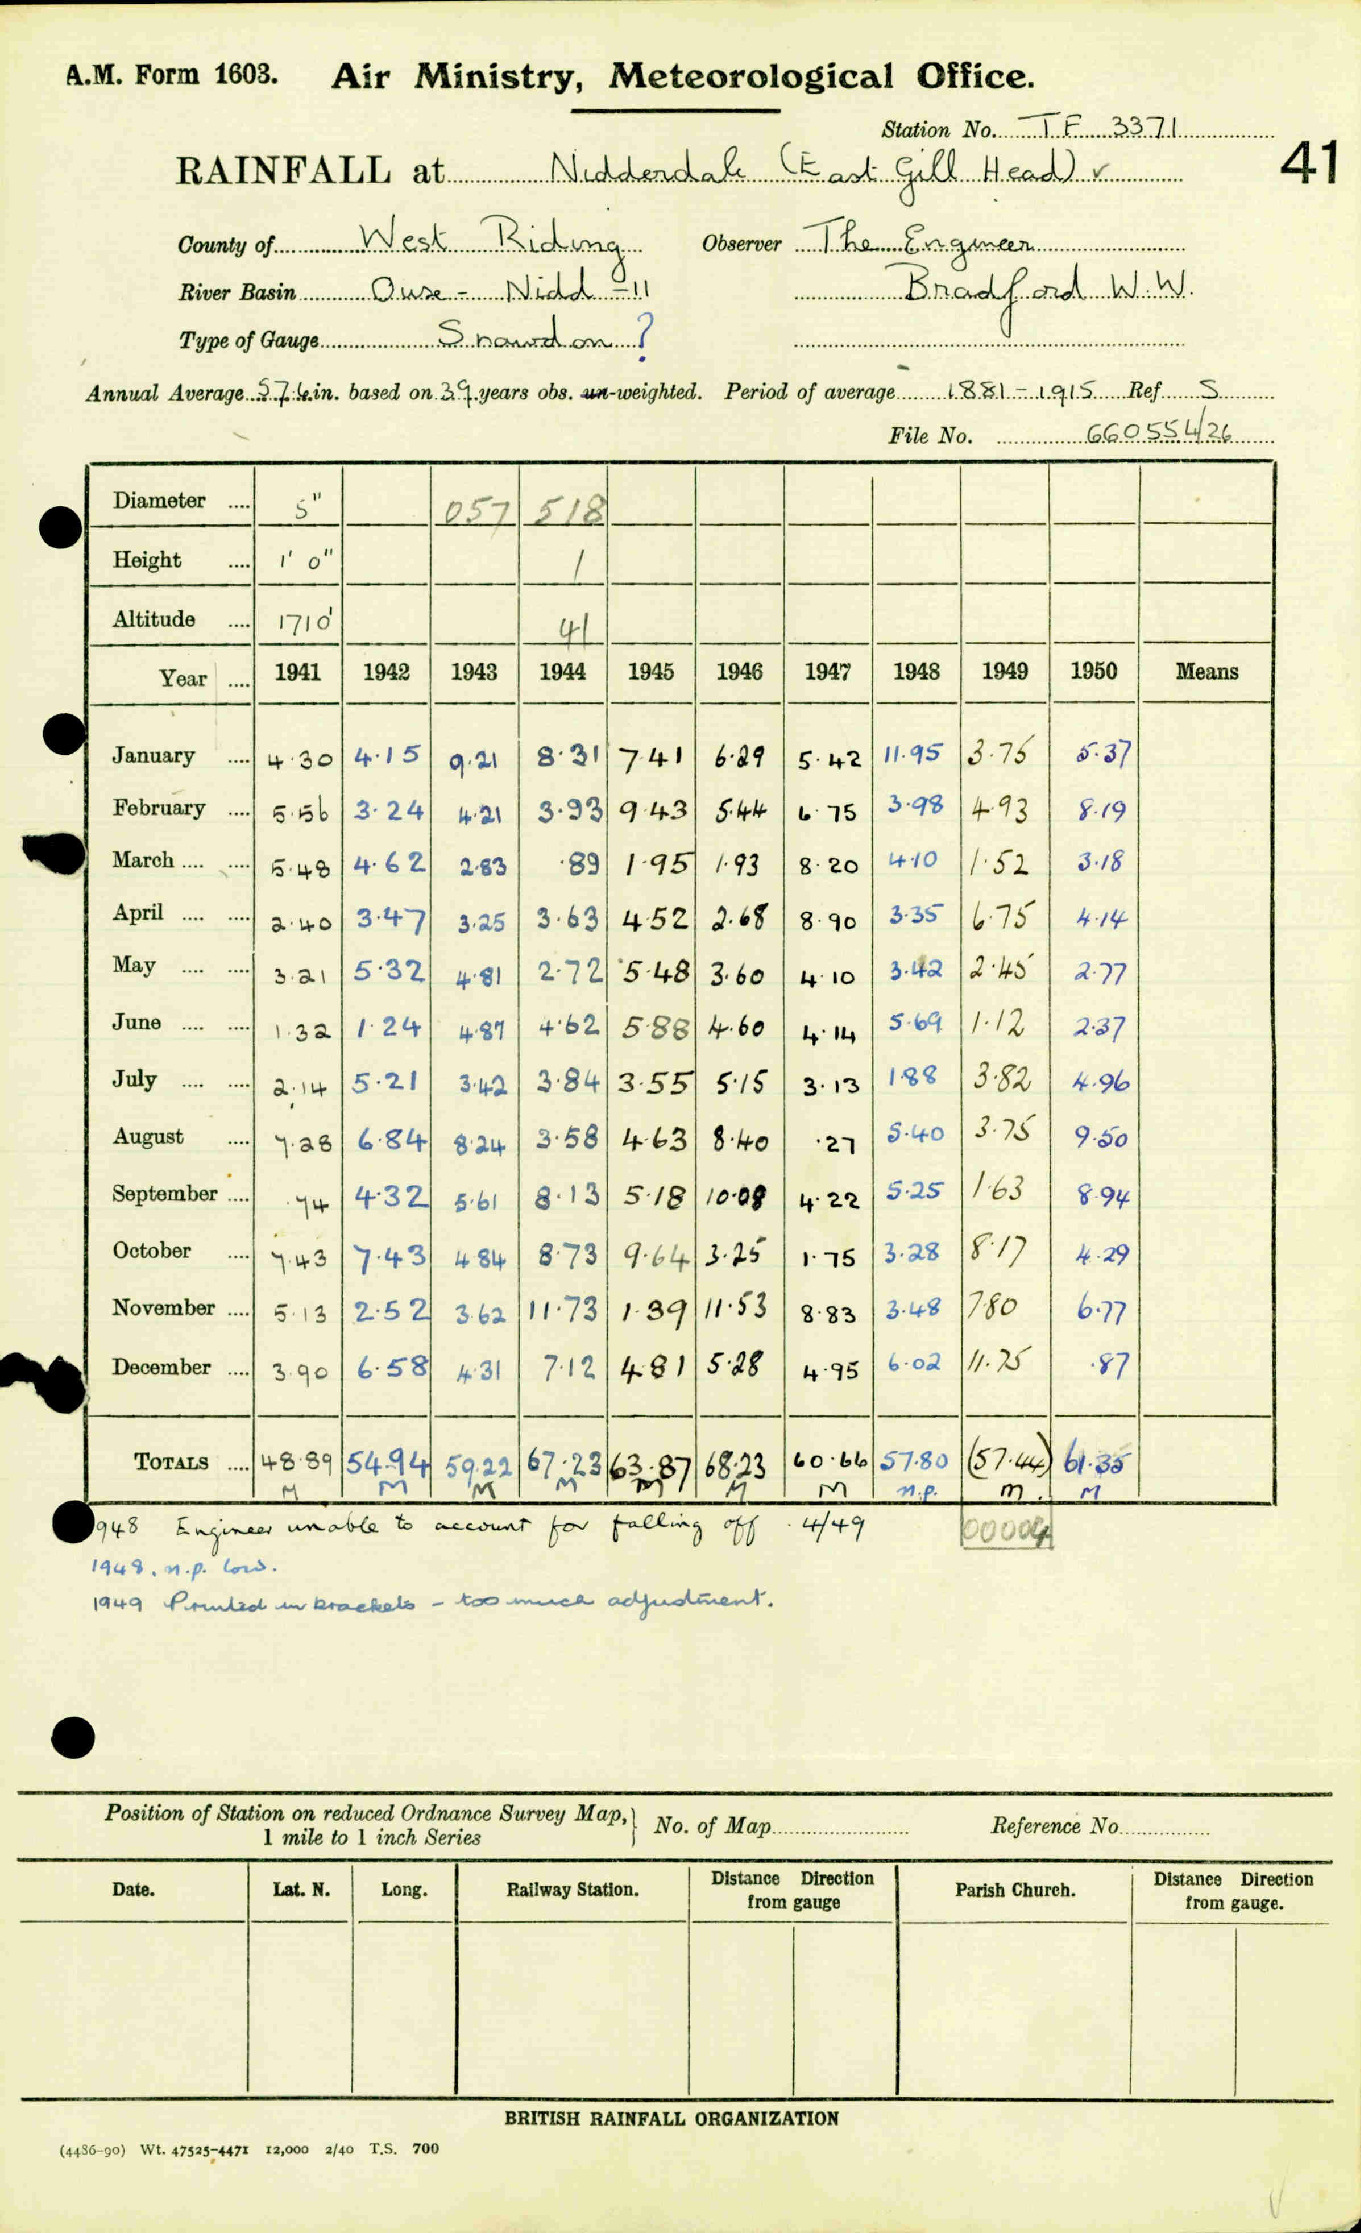 A.M. Form 1603. Air Ministry, Meteorological Office.
Station No. TF 3371
41
RAINFALL at Nidderdale (East Gill Head) v
County of West Riding Observer The Engineer
River Basin Ouse - Nidd -11 Bradford W.W.
Type of Gauge Snowdon ?
Annual Average 57.6 in. based on 39 years obs. un-weighted. Period of average 1881-1915 Ref S
File No. 660554/26
Diameter .... 5" 057 518
Height .... 1' 0" 1
Altitude .... 1710' 41
Year .... 1941 1942 1943 1944 1945 1946 1947 1948 1949 1950 Means
January .... 4.30 4.15 9.21 8.31 7.41 6.29 5.42 11.95 3.75 5.37
February .... 5.56 3.24 4.21 3.93 9.43 5.44 6.75 3.98 4.93 8.19
March .... .... 5.48 4.62 2.83 .89 1.95 1.93 8.20 4.10 1.52 3.18
April .... .... 2.40 3.47 3.25 3.63 4.52 2.68 8.90 3.35 6.75 4.14
May .... .... 3.21 5.32 4.81 2.72 5.48 3.60 4.10 3.42 2.45 2.77
June .... .... 1.32 1.24 4.87 4.62 5.88 4.60 4.14 5.69 1.12 2.37
July .... .... 2.14 5.21 3.42 3.84 3.55 5.15 3.13 1.88 3.82 4.96
August .... 7.28 6.84 8.24 3.58 4.63 8.40 .27 5.40 3.75 9.50
September .... .74 4.32 5.61 8.13 5.18 10.08 4.22 5.25 1.63 8.94
October .... 7.43 7.43 4.84 8.73 9.64 3.25 1.75 3.28 8.17 4.29
November .... 5.13 2.52 3.62 11.73 1.39 11.53 8.83 3.48 7.80 6.77
December .... 3.90 6.58 4.31 7.12 4.81 5.28 4.95 6.02 11.75 .87
TOTALS .... 48.89 54.94 59.22 67.23 63.87 68.23 60.66 57.80 (57.44) 61.35
M M M M M M M n.p. m. M
948 Engineer unable to account for falling off . 4/49 00004
1948. n.p. low.
1949 Printed in brackets - too much adjustment.
Position of Station on reduced Ordnance Survey Map, 1 mile to 1 inch Series } No. of Map Reference No.
Date. Lat. N. Long. Railway Station. Distance Direction from gauge Parish Church. Distance Direction from gauge.
BRITISH RAINFALL ORGANIZATION
(4486-90) Wt. 47525-4471 12,000 2/40 T.S. 700